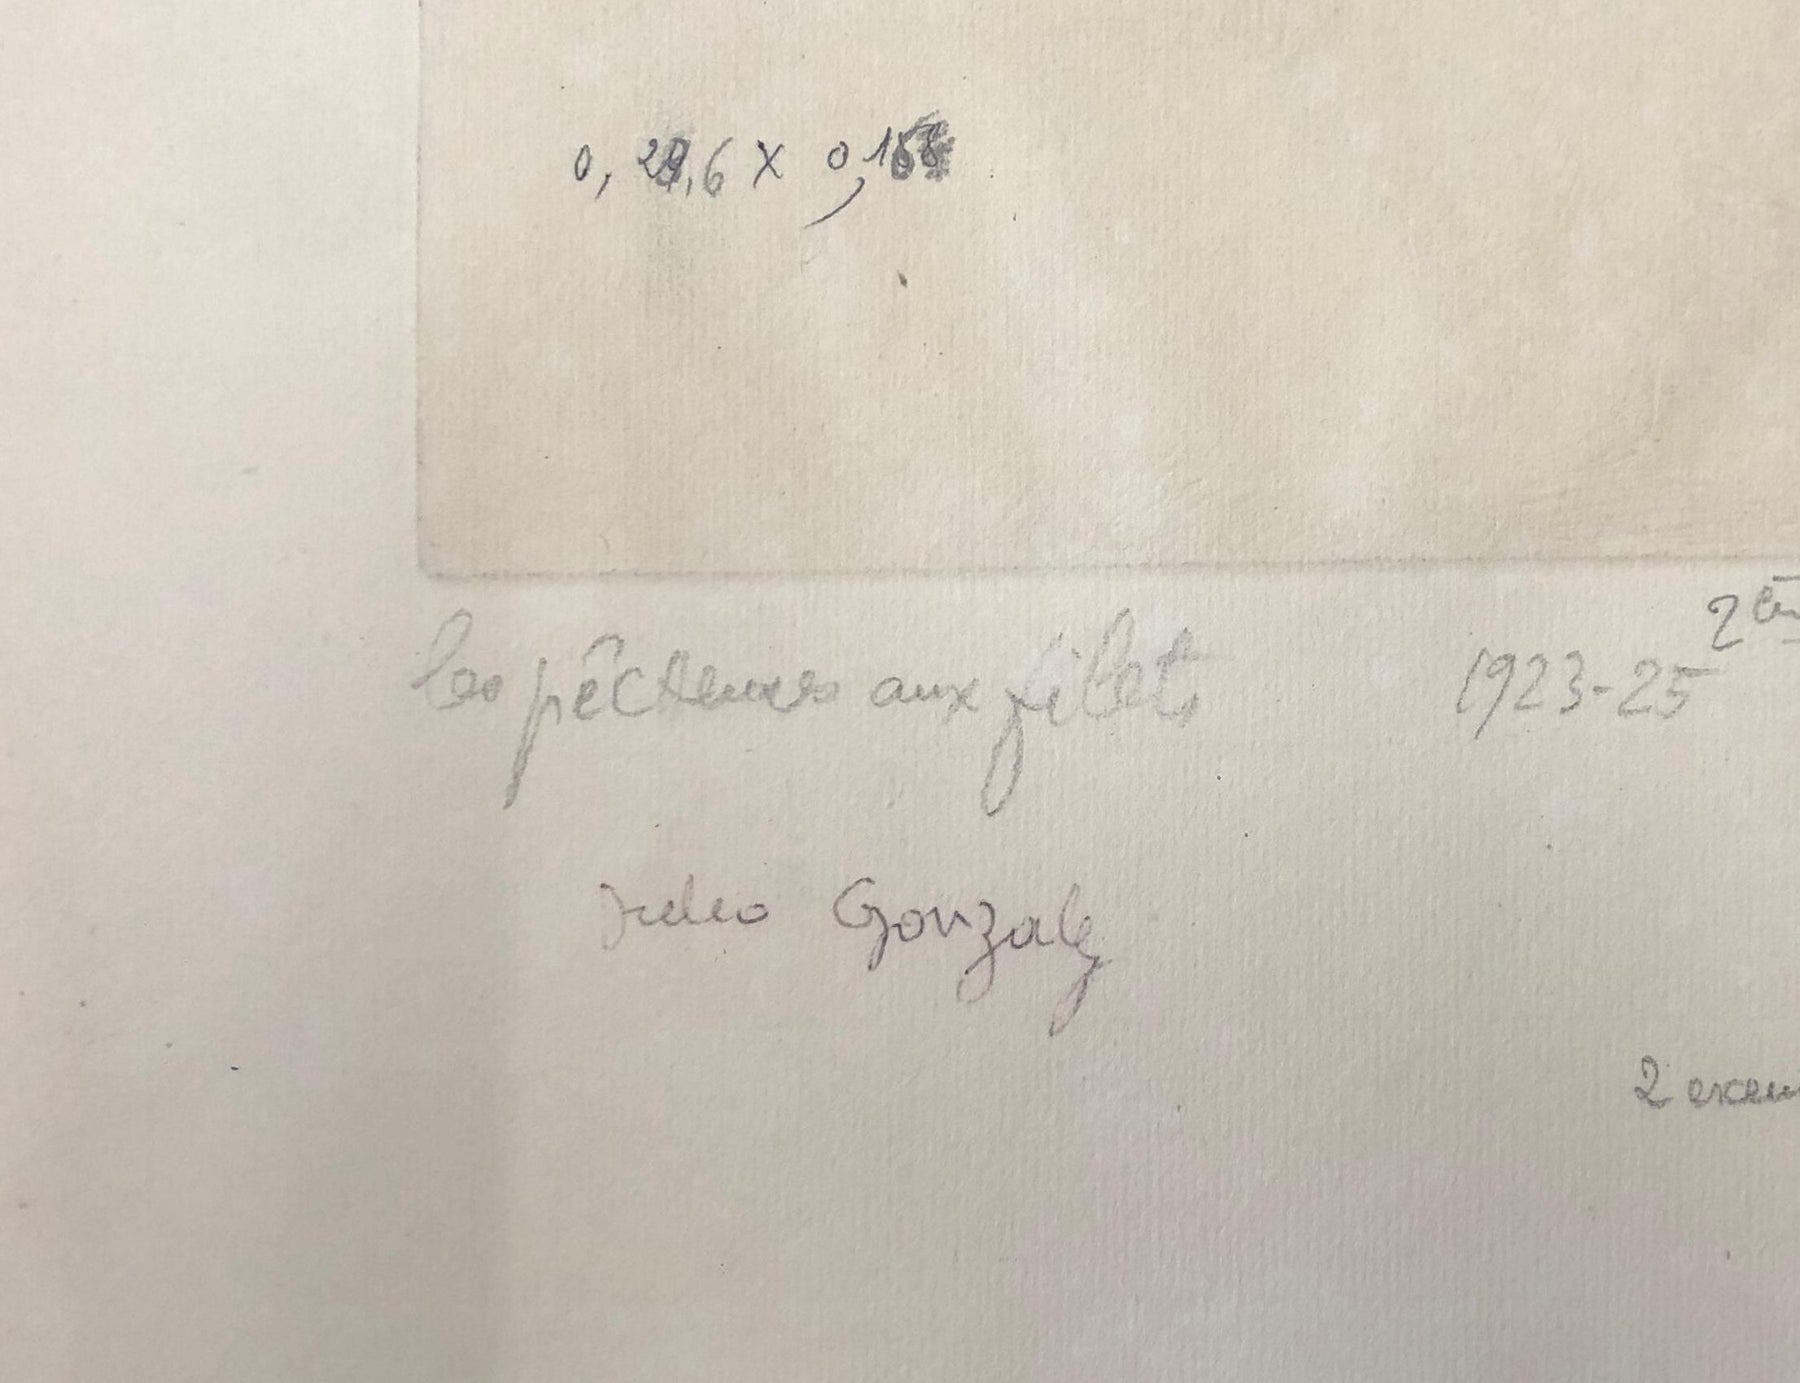 0, 29,6 X 0,168
2èm
les pêcheuses aux filets 1923-25
Julio Gonzalez
2 exem